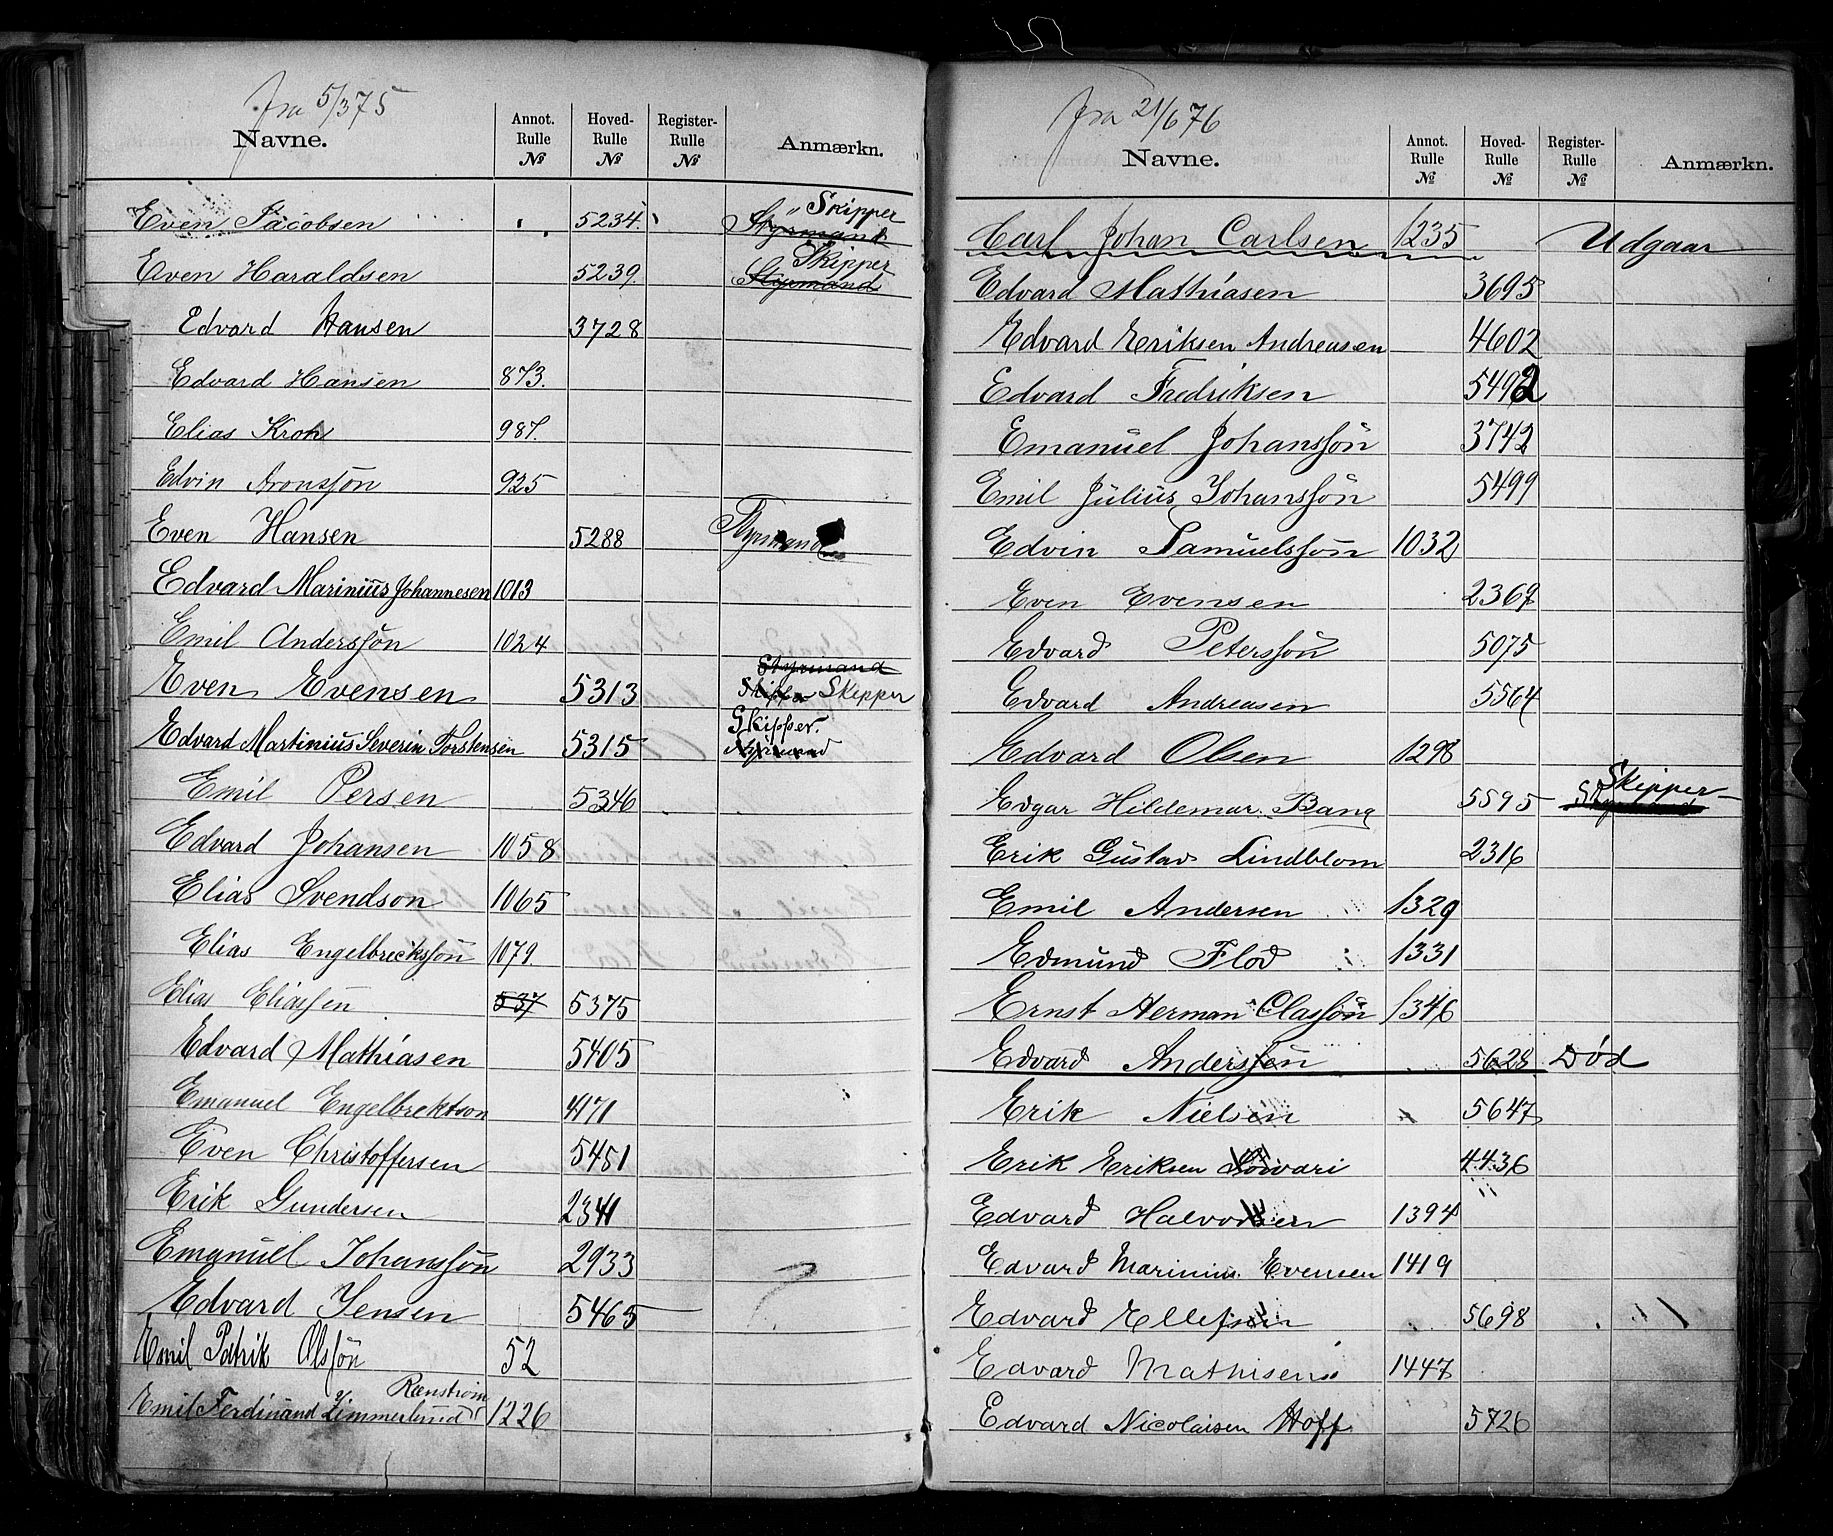 fra 5/3 75
Navne. Annot. Rulle № Hoved- Rulle № Register- Rulle № Anmærkn.
Even Jacobsen 5234. Styrmand Skipper
Even Haraldsen 5239. Styrmand Skipper
Edvard Hansen 3728
Edvard Hansen 873.
Elias Kroh 987.
Edvin Aronssön 925
Even Hansen 5288 Styrmand
Edvard Marinius Johannesen 1013
Emil Anderssön 1024
Styrmand
Even Evensen 5313 Skipper Skipper
Skipper.
Edvard Martinius Severin Torstensen 5315 Styrmand
Emil Persen 5346
Edvard Johansen 1058
Elias Svendson 1065
Elias Engelbreckssön 1079.
Elias Eliassen 537 5375
Edvard Mathiasen 5405
Emanuel Engelbrektson 4171
Even Christoffersen 5451
Erik Gundersen 2341
Emanuel Johanssön 2933 ?
Edvard Jensen 5465
Emil Patrik Olssön 52
Rænstrøm
Emil Ferdinand Zimmerlund 1226
fra 21/6 76
Navne. Annot. Rulle № Hoved- Rulle № Register- Rulle № Anmærkn.
Carl Johan Carlsen 1235 Udgaar
Edvard Mathiasen 3695
Edvard Eriksen Andreasen 4602
Edvard Fredriksen 5492
Emanuel Johanssön 3742
Emil Julius Johanssön 5499
Edvin Samuelssön 1032
Even Evensen 2369
Edvard Peterssön 5075
Edvard Andreasen 5564
Edvard Olsen 1298
Skipper
Edgar Hildemar Bang 5595 Styrmand
Erik Gustav Lindblom 2316
Emil Andersen 1329
Edmund Flod 1331
Ernst Herman Classön 1346
Edvard Anderssen 5628 Död
Erik Nielsen 5647
Erik Eriksen 4436
Edvard Halvorsen 1394
Edvard Marinius Evensen 1419
Edvard Ellefsen 5698
Edvard Mathisen 1447
Edvard Nicolaisen Hoff 5726